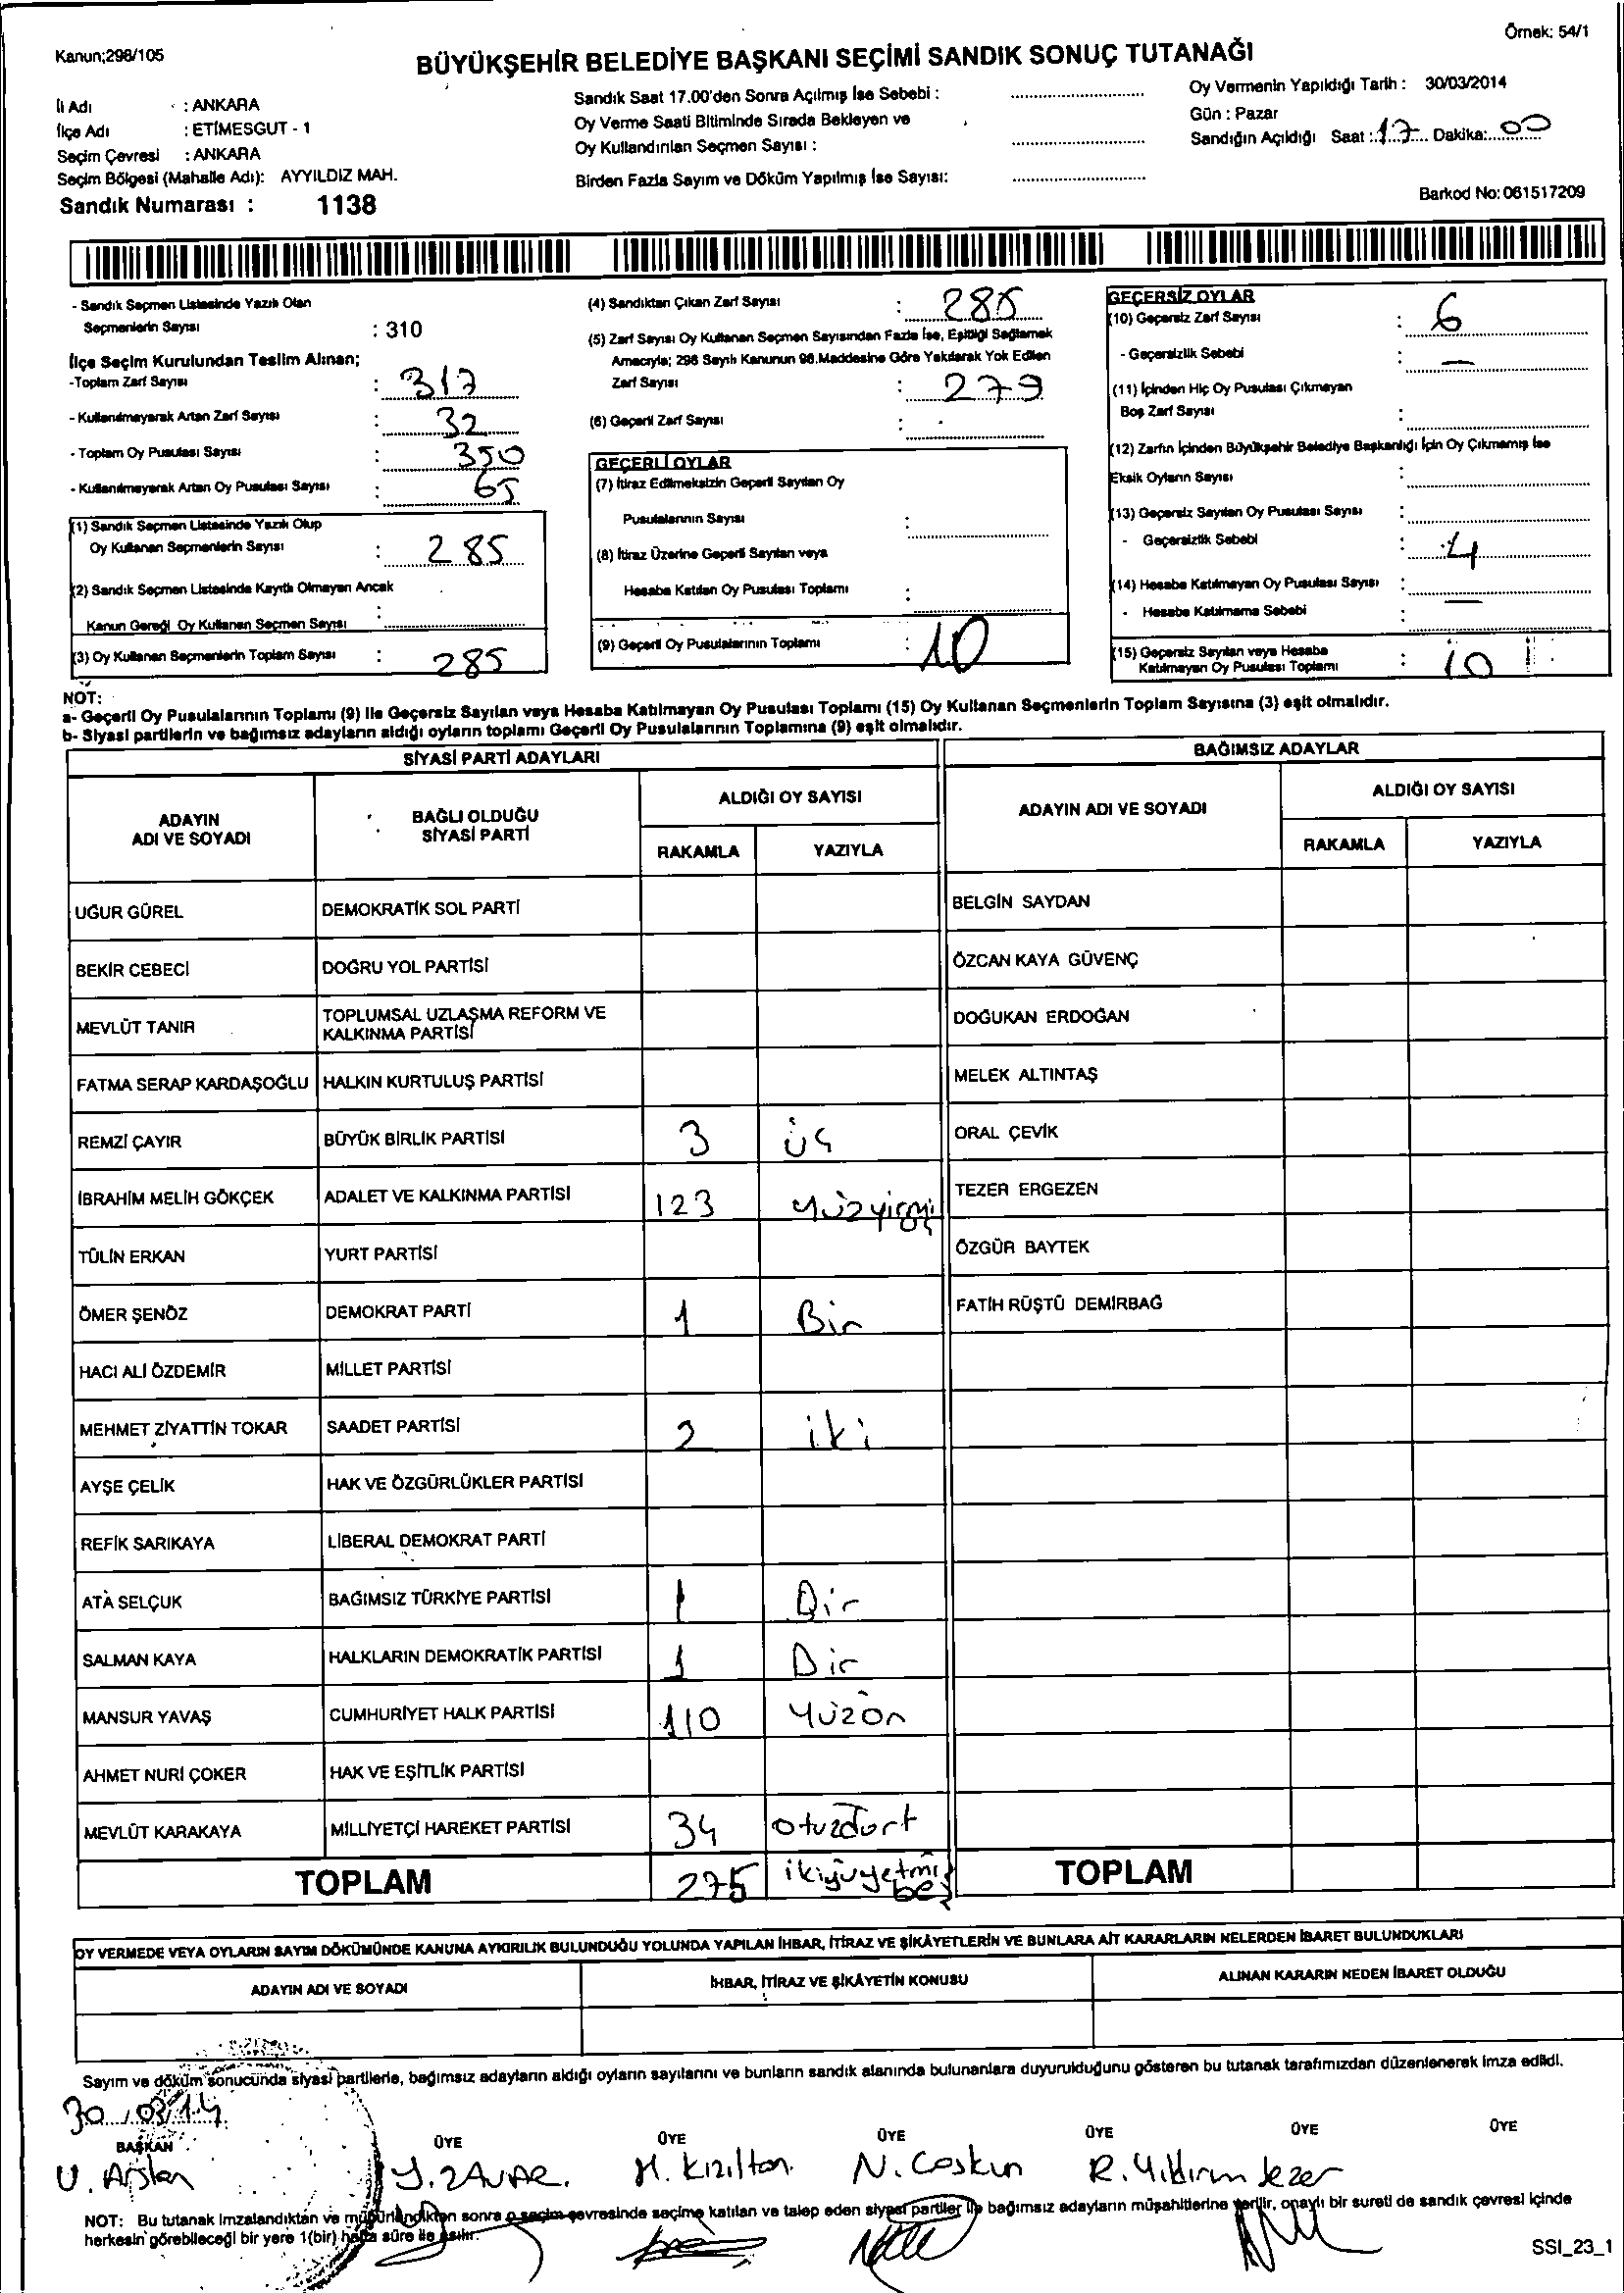 Örnek: 54/1
Kanun;298/105
BÜYÜKŞEHİR BELEDİYE BAŞKANI SEÇİMİ SANDIK SONUÇ TUTANAĞI
İli Adı : ANKARA
İlçe Adı : ETİMESGUT - 1
Seçim Çevresi : ANKARA
Seçim Bölgesi (Mahalle Adı): AYYILDIZ MAH.
Sandık Numarası : 1138
Sandık Saat 17.00'den Sonra Açılmış İse Sebebi :
Oy Verme Saati Bitiminde Sırada Bekleyen ve
Oy Kullandırılan Seçmen Sayısı :
Birden Fazla Sayım ve Döküm Yapılmış İse Sayısı:
Oy Vermenin Yapıldığı Tarih : 30/03/2014
Gün : Pazar
Sandığın Açıldığı Saat : 17 Dakika: 00
Barkod No: 061517209
- Sandık Seçmen Listesinde Yazılı Olan
Seçmenlerin Sayısı : 310
İlçe Seçim Kurulundan Teslim Alınan;
-Toplam Zarf Sayısı : 317
- Kullanılmayarak Artan Zarf Sayısı : 32
- Toplam Oy Pusulası Sayısı : 350
- Kullanılmayarak Artan Oy Pusulası Sayısı : 65
(1) Sandık Seçmen Listesinde Yazılı Olup
Oy Kullanan Seçmenlerin Sayısı : 285
(2) Sandık Seçmen Listesinde Kayıtlı Olmayan Ancak
Kanun Gereği Oy Kullanan Seçmen Sayısı :
(3) Oy Kullanan Seçmenlerin Toplam Sayısı : 285
(4) Sandıktan Çıkan Zarf Sayısı : 285
(5) Zarf Sayısı Oy Kullanan Seçmen Sayısından Fazla İse, Eşitliği Sağlamak
Amacıyla; 298 Sayılı Kanunun 98.Maddesine Göre Yakılarak Yok Edilen
Zarf Sayısı : 279
(6) Geçerli Zarf Sayısı :
GEÇERLİ OYLAR
(7) İtiraz Edilmeksizin Geçerli Sayılan Oy
Pusulalarının Sayısı :
(8) İtiraz Üzerine Geçerli Sayılan veya
Hesaba Katılan Oy Pusulası Toplamı :
(9) Geçerli Oy Pusulalarının Toplamı : 10
GEÇERSİZ OYLAR
(10) Geçersiz Zarf Sayısı : 6
- Geçersizlik Sebebi : —
(11) İçinden Hiç Oy Pusulası Çıkmayan
Boş Zarf Sayısı :
(12) Zarfın İçinden Büyükşehir Belediye Başkanlığı İçin Oy Çıkmamış İse
Eksik Oyların Sayısı :
(13) Geçersiz Sayılan Oy Pusulası Sayısı :
- Geçersizlik Sebebi : 4
(14) Hesaba Katılmayan Oy Pusulası Sayısı : —
- Hesaba Katılmama Sebebi :
(15) Geçersiz Sayılan veya Hesaba
Katılmayan Oy Pusulası Toplamı : 10
NOT:
a- Geçerli Oy Pusulalarının Toplamı (9) ile Geçersiz Sayılan veya Hesaba Katılmayan Oy Pusulası Toplamı (15) Oy Kullanan Seçmenlerin Toplam Sayısına (3) eşit olmalıdır.
b- Siyasi partilerin ve bağımsız adayların aldığı oyların toplamı Geçerli Oy Pusulalarının Toplamına (9) eşit olmalıdır.
SİYASİ PARTİ ADAYLARI
BAĞIMSIZ ADAYLAR
ADAYIN ADI VE SOYADI
BAĞLI OLDUĞU SİYASİ PARTİ
ALDIĞI OY SAYISI
RAKAMLA YAZIYLA
ADAYIN ADI VE SOYADI
ALDIĞI OY SAYISI
RAKAMLA YAZIYLA
UĞUR GÜREL DEMOKRATİK SOL PARTİ BELGİN SAYDAN
BEKİR CEBECİ DOĞRU YOL PARTİSİ ÖZCAN KAYA GÜVENÇ
MEVLÜT TANIR TOPLUMSAL UZLAŞMA REFORM VE KALKINMA PARTİSİ DOĞUKAN ERDOĞAN
FATMA SERAP KARDAŞOĞLU HALKIN KURTULUŞ PARTİSİ MELEK ALTINTAŞ
REMZİ ÇAYIR BÜYÜK BİRLİK PARTİSİ 3 üç ORAL ÇEVİK
İBRAHİM MELİH GÖKÇEK ADALET VE KALKINMA PARTİSİ 123 yüzyirmi üç TEZER ERGEZEN
TÜLİN ERKAN YURT PARTİSİ ÖZGÜR BAYTEK
ÖMER ŞENÖZ DEMOKRAT PARTİ 1 Bir FATİH RÜŞTÜ DEMİRBAĞ
HACI ALİ ÖZDEMİR MİLLET PARTİSİ
MEHMET ZİYATTİN TOKAR SAADET PARTİSİ 2 iki
AYŞE ÇELİK HAK VE ÖZGÜRLÜKLER PARTİSİ
REFİK SARIKAYA LİBERAL DEMOKRAT PARTİ
ATA SELÇUK BAĞIMSIZ TÜRKİYE PARTİSİ 1 Bir
SALMAN KAYA HALKLARIN DEMOKRATİK PARTİSİ 1 Bir
MANSUR YAVAŞ CUMHURİYET HALK PARTİSİ 110 yüzon
AHMET NURİ ÇOKER HAK VE EŞİTLİK PARTİSİ
MEVLÜT KARAKAYA MİLLİYETÇİ HAREKET PARTİSİ 34 otuzdört
TOPLAM 275 ikiyüyetmiş beş TOPLAM
OY VERMEDE VEYA OYLARIN SAYIM DÖKÜMÜNDE KANUNA AYKIRILIK BULUNDUĞU YOLUNDA YAPILAN İHBAR, İTİRAZ VE ŞİKÂYETLERİN VE BUNLARA AİT KARARLARIN NELERDEN İBARET BULUNDUKLARI
ADAYIN ADI VE SOYADI İHBAR, İTİRAZ VE ŞİKÂYETİN KONUSU ALINAN KARARIN NEDEN İBARET OLDUĞU
Sayım ve döküm sonucunda siyasi partilerle, bağımsız adayların aldığı oyların sayılarını ve bunların sandık alanında bulunanlara duyurulduğunu gösteren bu tutanak tarafımızdan düzenlenerek imza edildi.
30/03/14
BAŞKAN ÜYE ÜYE ÜYE ÜYE ÜYE ÜYE
U. Arslan Y. ZAVAR. M. Kızıltan N. Coskun R. Yıldırım Sezer
NOT: Bu tutanak imzalandıktan ve mühürlendikten sonra o seçim çevresinde seçime katılan ve talep eden siyasi partiler ile bağımsız adayların müşahitlerine verilir, onaylı bir sureti de sandık çevresi içinde
herkesin görebileceği bir yere 1(bir) hafta süre ile asılır.
SSI_23_1